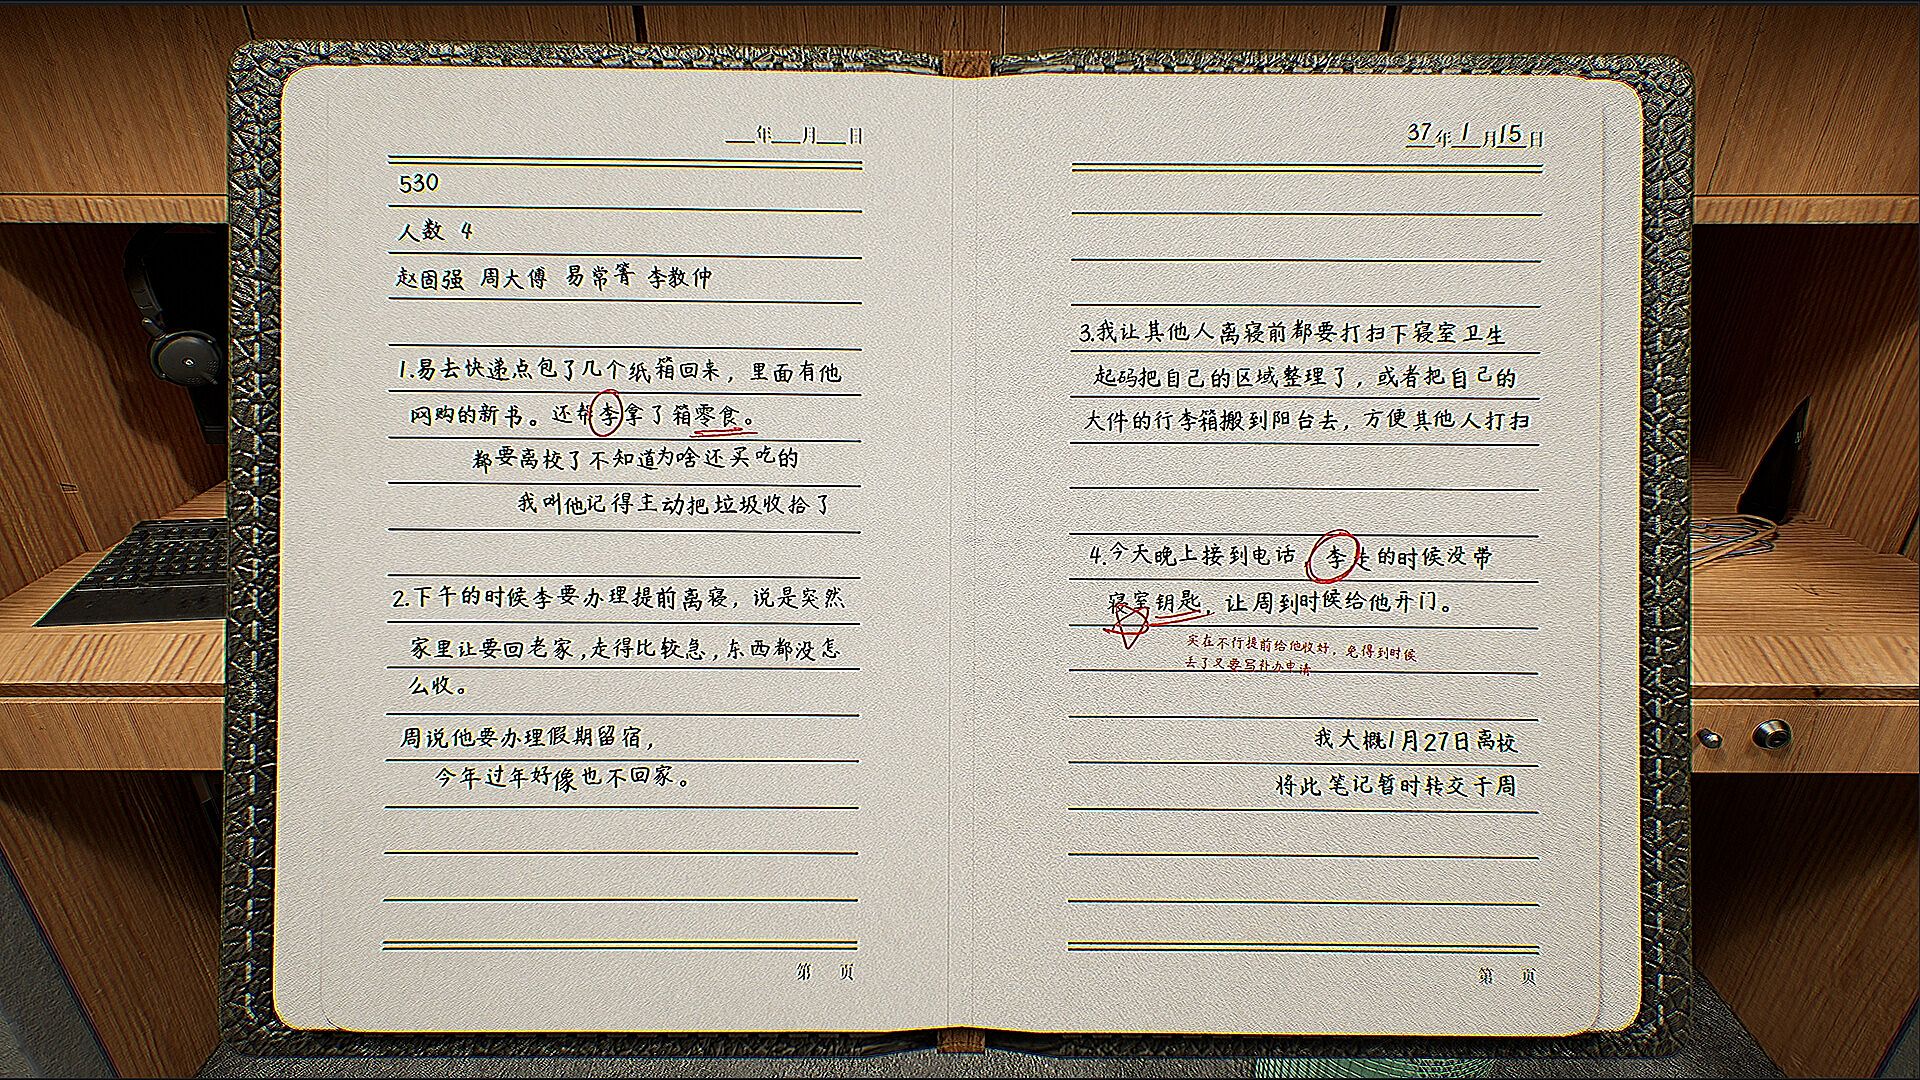 __年__月__日
530
人数 4
赵固强 周大傅 易常箐 李教仲
1.易去快递点包了几个纸箱回来，里面有他
网购的新书。还帮李拿了箱零食。
都要离校了不知道为啥还买吃的
我叫他记得主动把垃圾收拾了
2.下午的时候李要办理提前离寝，说是突然
家里让要回老家，走得比较急，东西都没怎
么收。
周说他要办理假期留宿，
今年过年好像也不回家。
第 页
37年1月15日
3.我让其他人离寝前都要打扫下寝室卫生
起码把自己的区域整理了，或者把自己的
大件的行李箱搬到阳台去，方便其他人打扫
4.今天晚上接到电话，李走的时候没带
寝室钥匙，让周到时候给他开门。
实在不行提前给他收好，免得到时候
丢了又要写补办申请
我大概1月27日离校
将此笔记暂时转交于周
第 页